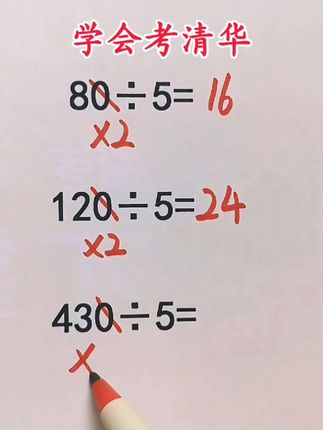 学会考清华
80÷5=16
×2
120÷5=24
×2
430÷5=
×